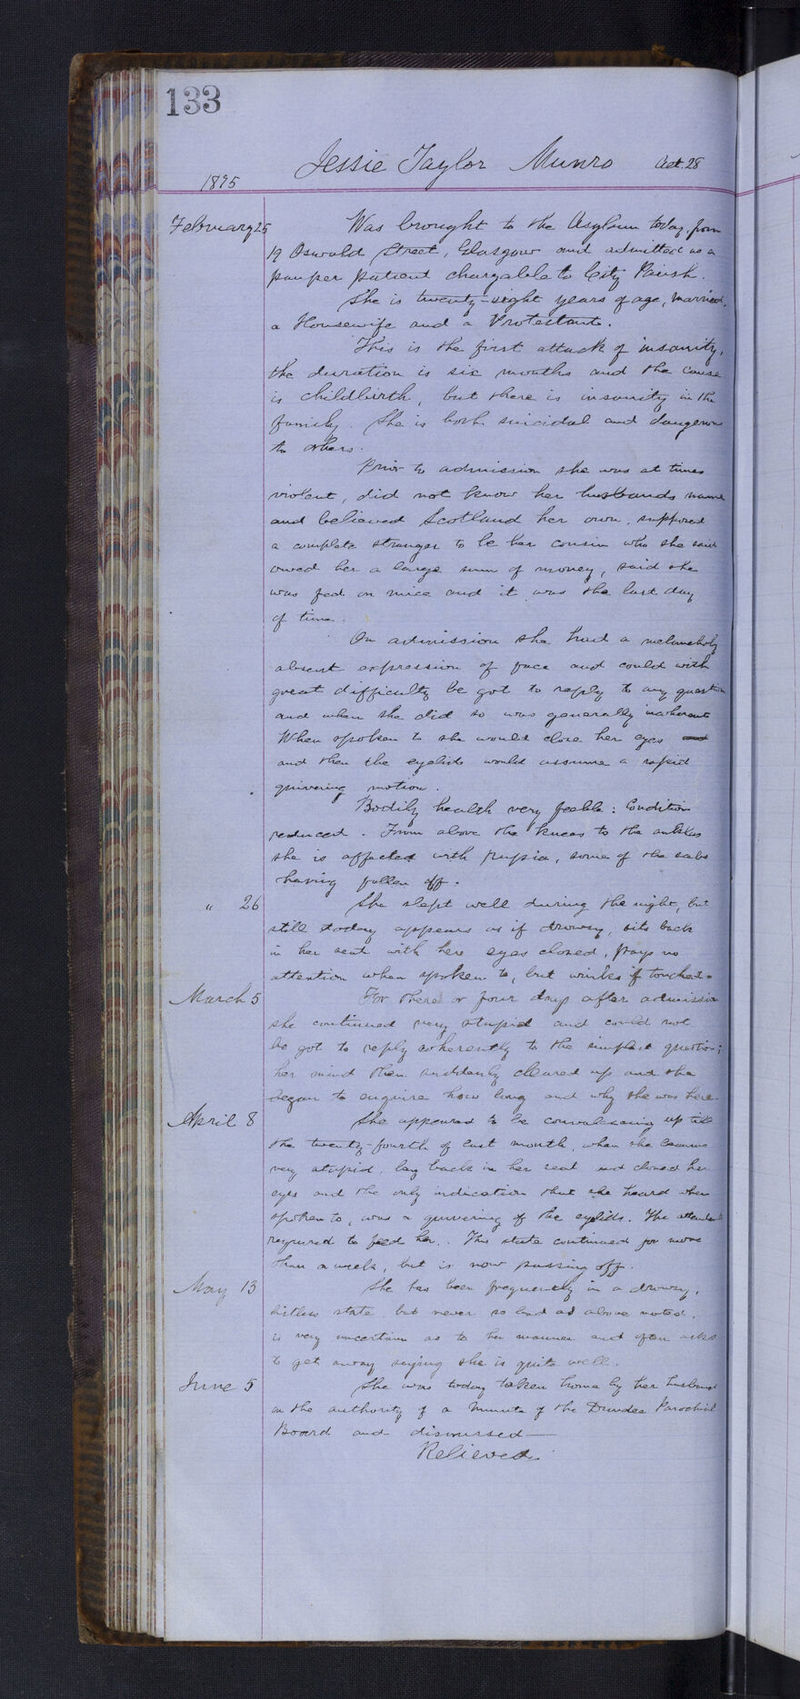 133
Jessie Taylor Munro Aet. 28
1895
February 25 Was brought to the Asylum today, from
19 Oswald Street, Glasgow and admitted as a
pauper patient chargable to City Parish.
She is twenty-eight years of age, married,
a Housewife and a Protestant.
This is the first attack of insanity,
the duration is six months and the cause
is childbirth, but there is insanity in the
family. She is both suicidal and dangerous
to others.
Prior to admission she was at times
violent, did not know her husbands name
and believed Scotland her own, supposed
a complete stranger to be her cousin who she said
owed her a large sum of money, said she
was fed on mice and it was the last day
of time.
On admission she had a melancholy
absent expression of face and could with
great difficulty be got to reply to any question
and when she did so was generally incoherent
When spoken to she would close her eyes and
and then the eyelids would assume a rapid
quivering motion.
Bodily health very feeble: Condition
reduced. From above the knees to the ankles
she is affected with rupia, some of the scabs
having fallen off.
" 26 She slept well during the night, but
still today appears as if drowsy, sits back
in her seat with her eyes closed, pays no
attention when spoken to, but winks if touched.
March 5 For three or four days after admission
she continued very stupid and could not
be got to reply coherently to the simplest question;
her mind then suddenly cleared up and she
began to enquire how long and why she was here.
April 8 She appeared to be convalescing up till
the twenty-fourth of last month, when she became
very stupid, lay back in her seat and closed her
eyes and the only indication that she heard when
spoken to, was a quivering of the eyelids. The attendants
required to feed her. This state continued for more
than a week, but is now passing off.
May 13 She has been frequently in a drowsy,
listless state but never so bad as above noted,
is very uncertain as to her manner and often asks
to get away saying she is quite well.
June 5 She was today taken home by her husband
on the authority of a minute of the Dundee Parochial
Board and dismissed—
Relieved.